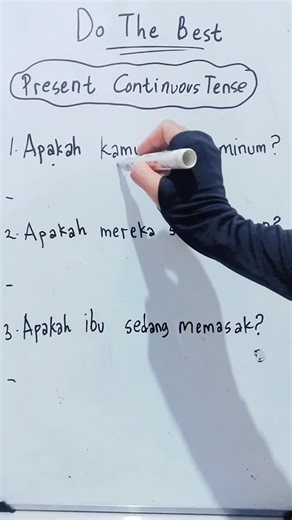 Do The Best
Present Continuous Tense
1. Apakah kamu minum?
-
2. Apakah mereka
-
3. Apakah ibu sedang memasak?
-